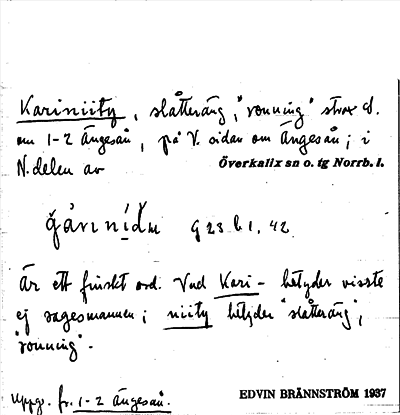 Kariniity, slåtteräng, "ronning" strax S.
om 1-2 Ängesån, på V. sidan om Ängesån; i
N. delen av Överkalix sn o. tg Norrb. l.
G 23 b 1, 42
Är ett finskt ord. Vad Kari- betyder visste
ej sagesmannen; niity betyder "slåtteräng",
"ronning".
Uppg. fr. 1-2 Ängesån.
EDVIN BRÄNNSTRÖM 1937